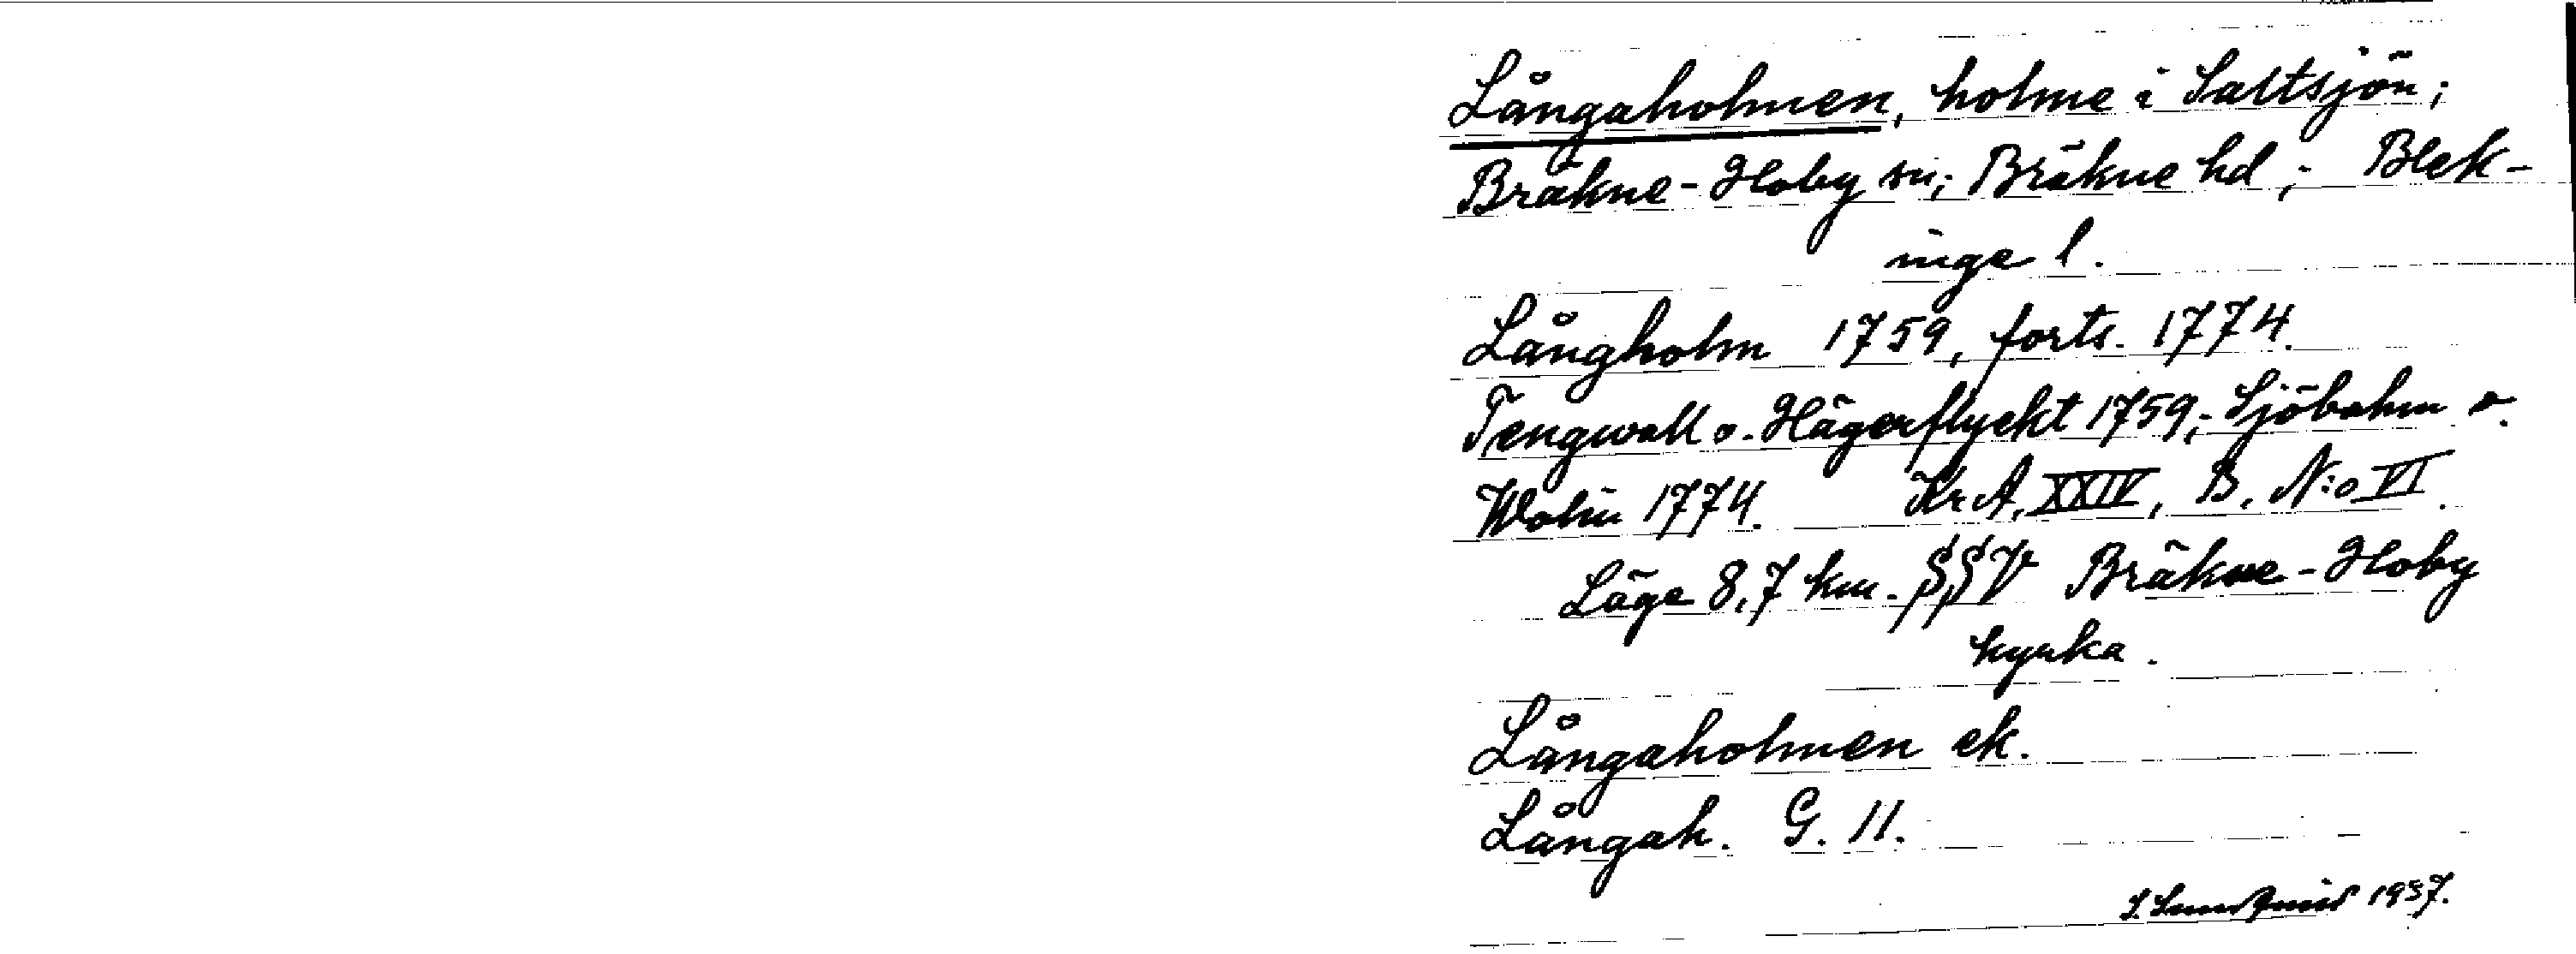 Långaholmen, holme i Saltsjön;
Bräkne-Hoby sn; Bräkne hd; Blek-
inge l.
Långholm 1759, forts. 1774.
Tengwall o. Hägerflyckt 1759; Sjöbohm o.
Wolin 1774. KrA, XXIV, B. N:o VI.
Läge 8,7 km. SSV Bräkne-Hoby
kyrka.
Långaholmen ek.
Långah. G. 11.
1957.